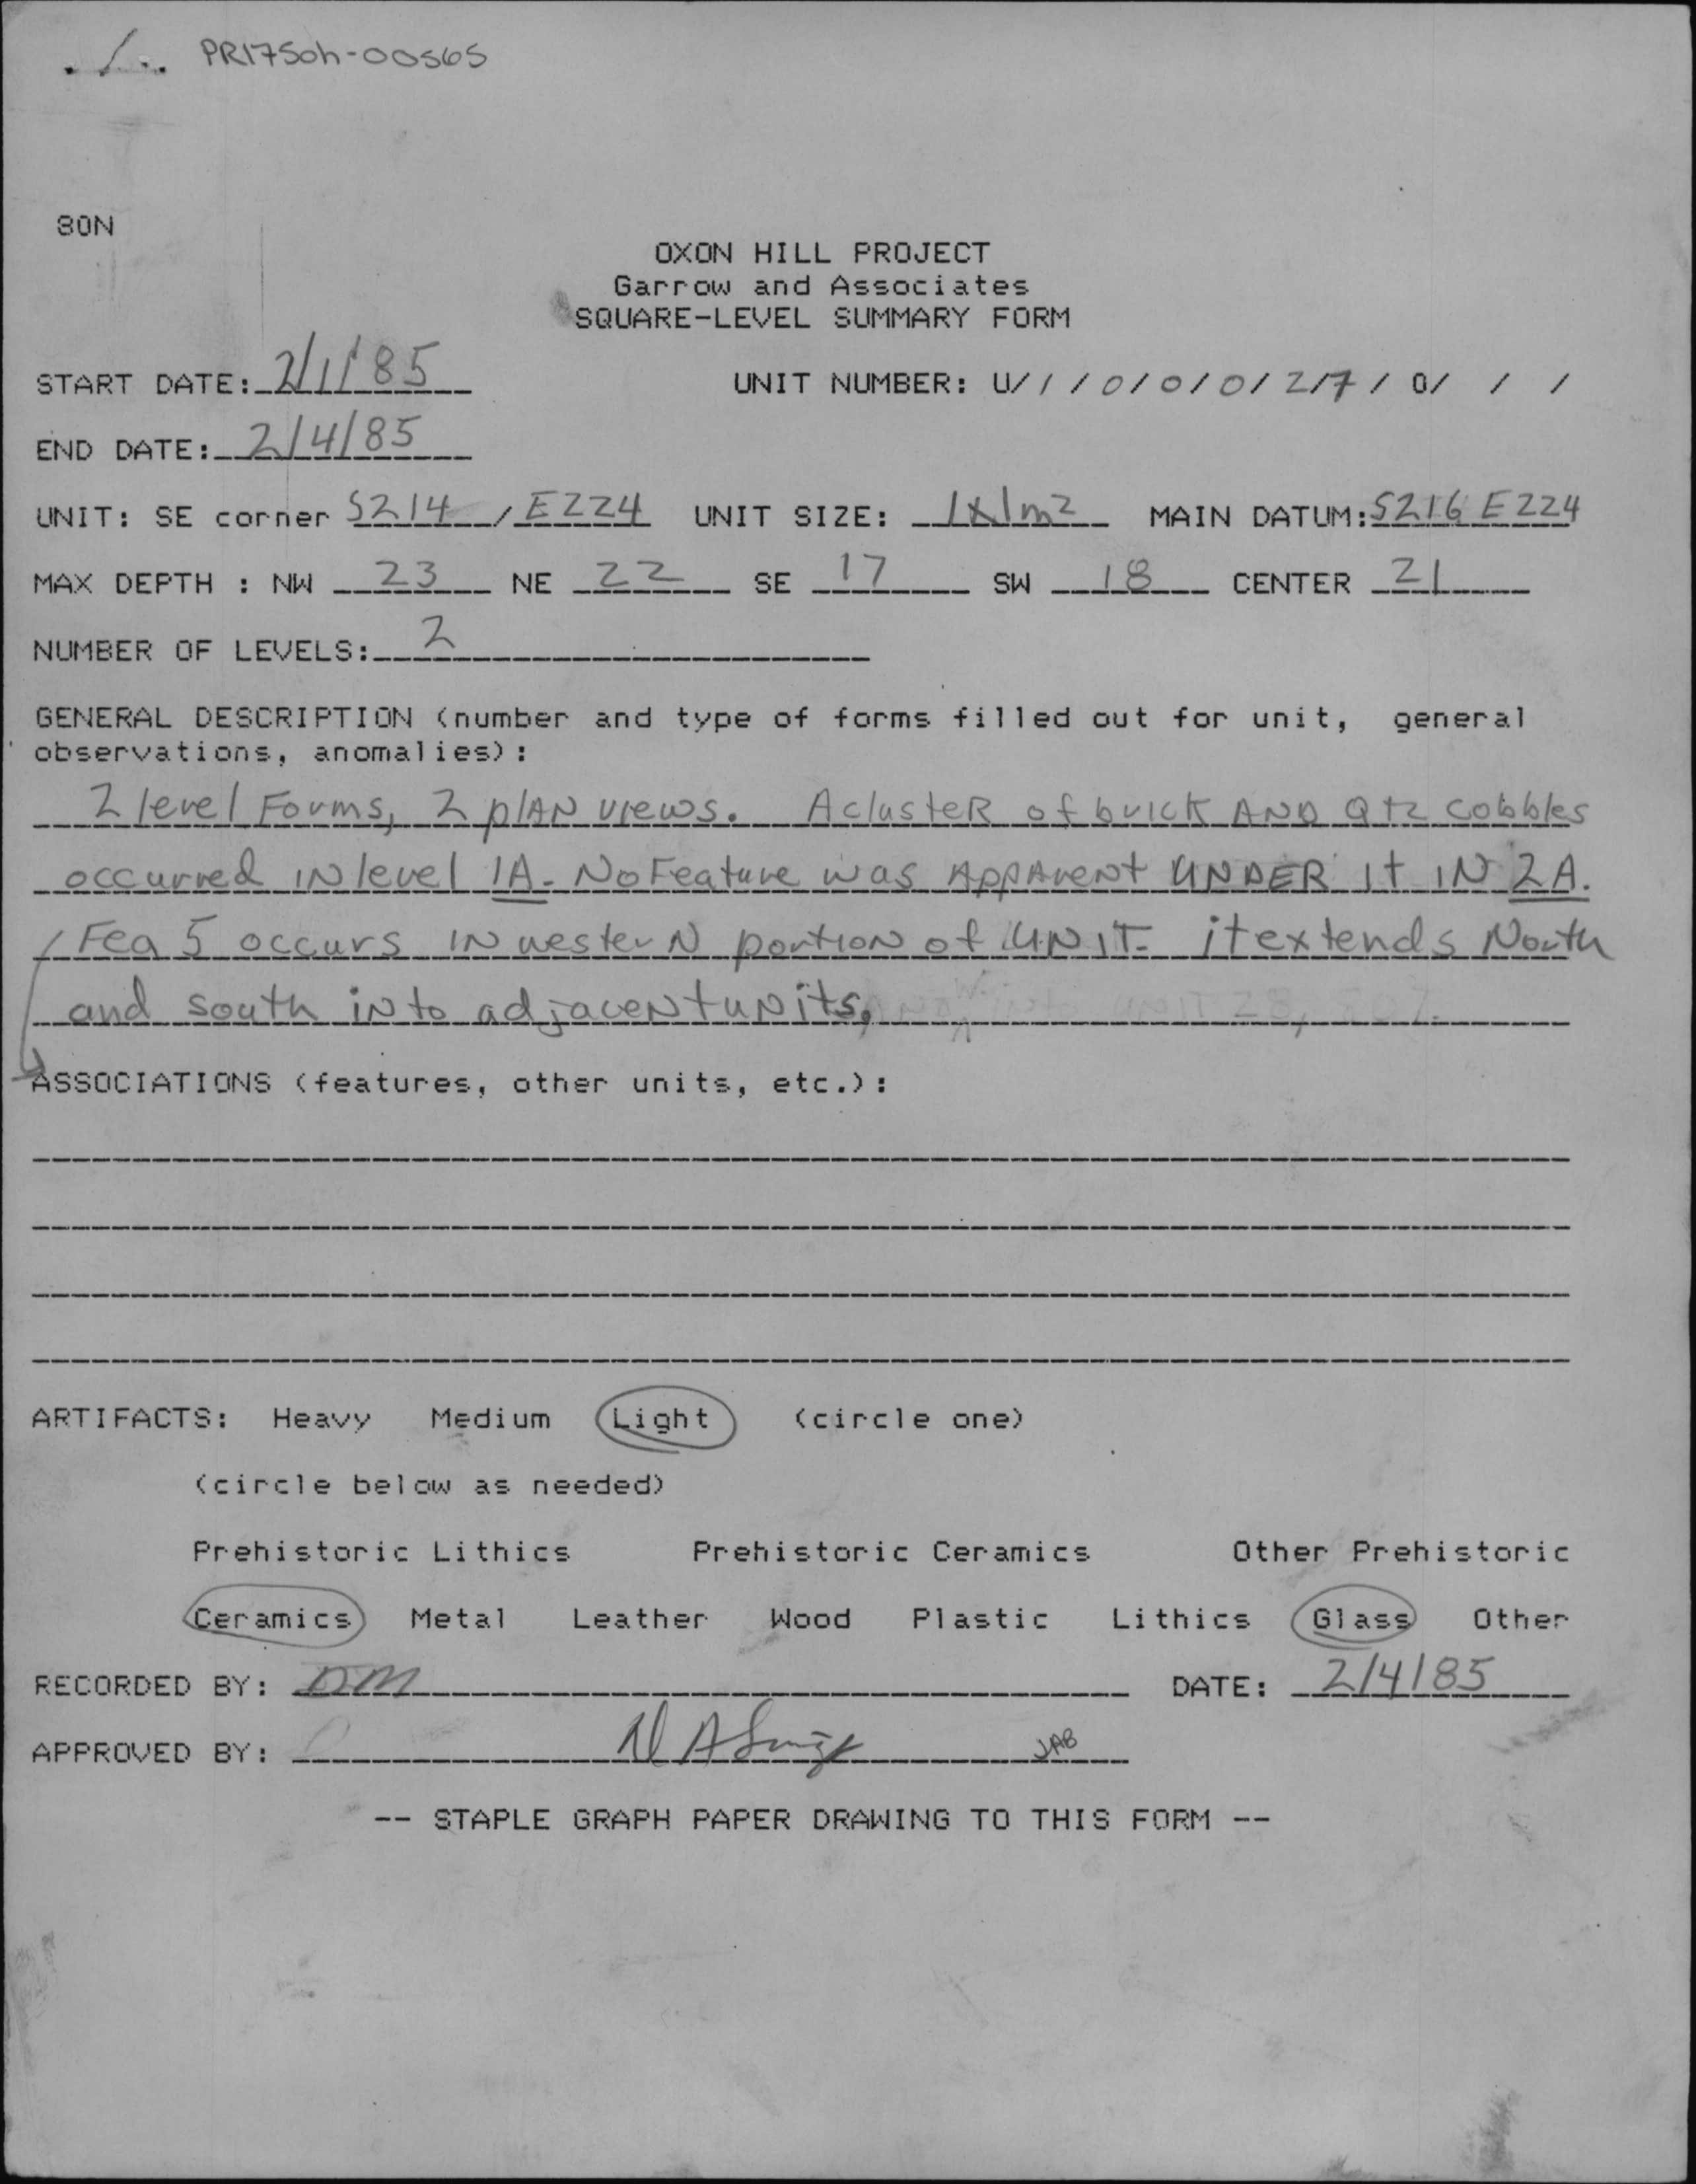 PR175oh-00565
80N
OXON HILL PROJECT
Garrow and Associates
SQUARE-LEVEL SUMMARY FORM
START DATE: 2/1/85 UNIT NUMBER: U/1/0/0/0/2/7/0/ / /
END DATE: 2/4/85
UNIT: SE corner S214 / E224 UNIT SIZE: 1x1m2 MAIN DATUM: S216 E224
MAX DEPTH : NW 23 NE 22 SE 17 SW 18 CENTER 21
NUMBER OF LEVELS: 2
GENERAL DESCRIPTION (number and type of forms filled out for unit, general
observations, anomalies):
2 level Forms, 2 plAN views. A clusteR of brick AND Qtz cobbles
occurred IN level 1A. No Feature was AppArent UNDER It IN 2A.
Fea 5 occurs IN westerN portioN of UNIT. it extends North
and south iNto adjaceNt uNits.
ASSOCIATIONS (features, other units, etc.):
ARTIFACTS: Heavy Medium Light (circle one)
(circle below as needed)
Prehistoric Lithics Prehistoric Ceramics Other Prehistoric
Ceramics Metal Leather Wood Plastic Lithics Glass Other
RECORDED BY: DM DATE: 2/4/85
APPROVED BY: JAB
-- STAPLE GRAPH PAPER DRAWING TO THIS FORM --